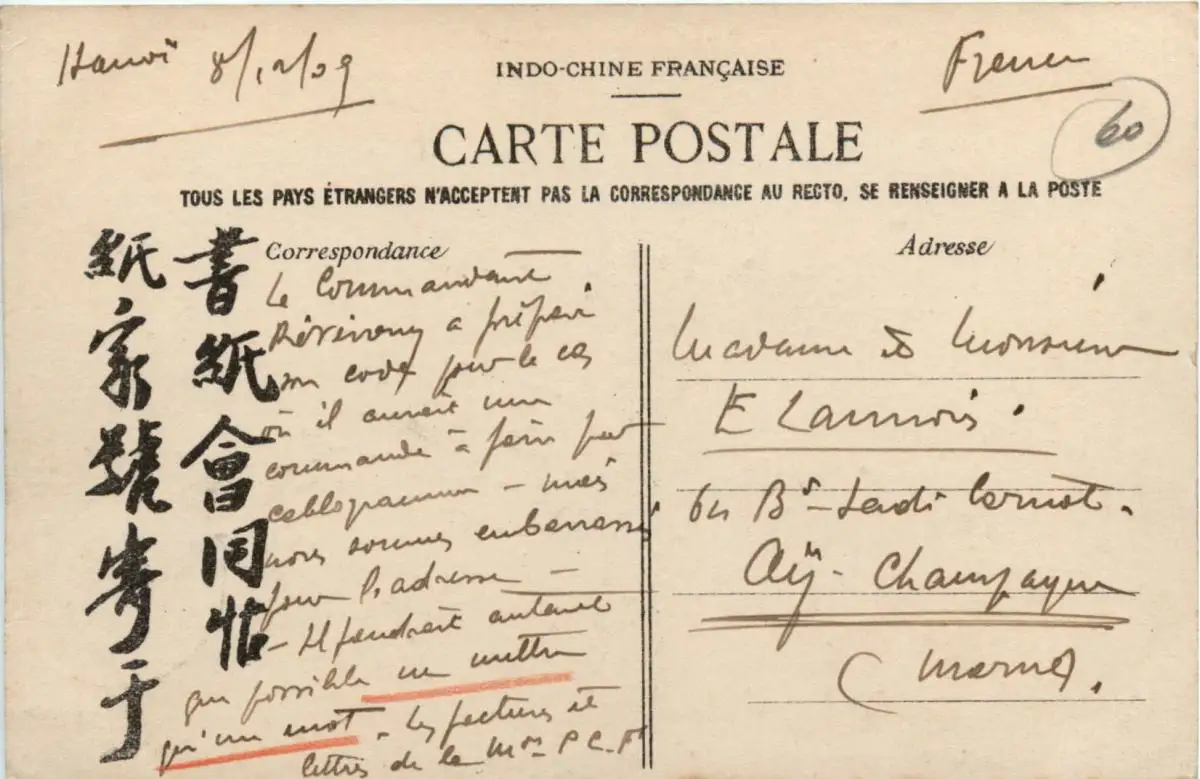 Hanoï 8/12/09
France
60
INDO-CHINE FRANÇAISE
CARTE POSTALE
TOUS LES PAYS ÉTRANGERS N'ACCEPTENT PAS LA CORRESPONDANCE AU RECTO, SE RENSEIGNER A LA POSTE
書紙會同帖
紙家號寄于
Correspondance
Le Commandant
a préparé
un code pour le cas
où il aurait une
commande à faire par
cablogramme – mais
nous sommes embarrassés
pour l'adresse –
– Il faudrait autant
que possible ne mettre
qu'un mot. Les factures et
lettres de la Mon P C Ft
Adresse
Madame & Monsieur
E Lannois
64 Bd Sadi Carnot.
Aÿ - Champagne
(Marne).